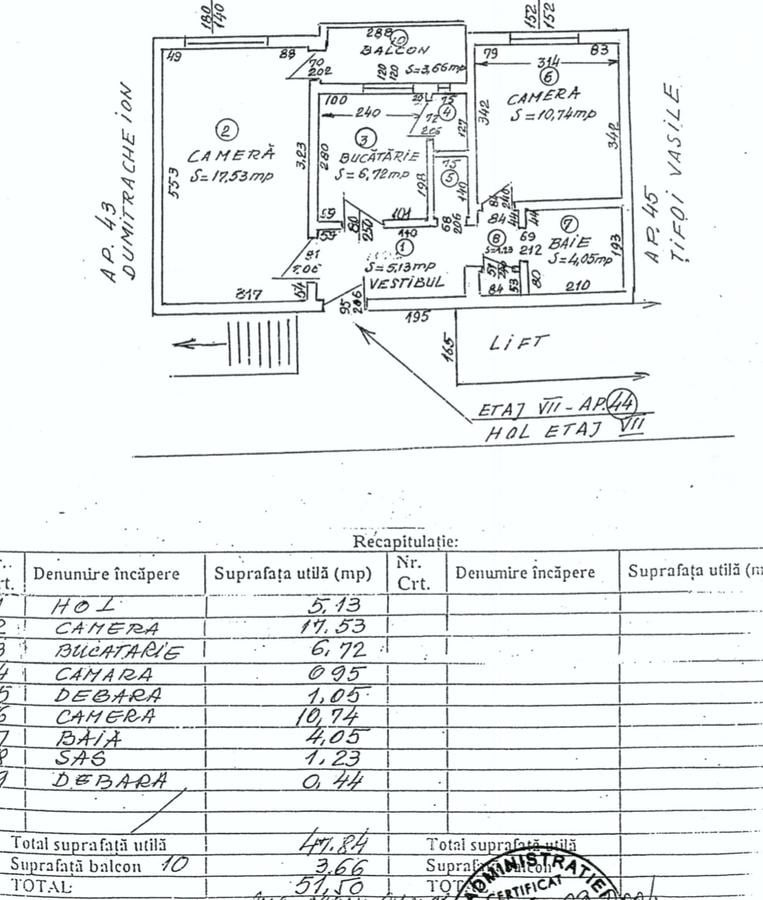 180
140
152
152
288
10
BALCON
S=3,66mp
49
88
70
202
120
120
79
314
83
6
CAMERA
S=10,74mp
342
342
100
240
75
4
72
206
127
2
CAMERĂ
S=17,53mp
553
3,23
280
3
BUCĂTĂRIE
S=6,72mp
198
75
5
140
AP. 43
DUMITRACHE ION
AP. 45
ȚIFOI VASILE
59
80
250
101
110
68
206
84
44
44
7
BAIE
S=4,05mp
193
8
69
212
59
1
S=5,13mp
VESTIBUL
81
206
54
84
53
80
210
317
95
206
195
165
LIFT
ETAJ VII - AP. 44
HOL ETAJ VII
Recapitulație:
Denumire încăpere Suprafața utilă (mp) Nr. Crt. Denumire încăpere Suprafața utilă
HOL 5,13
CAMERA 17.53
BUCATARIE 6,72
CAMARA 0 95
DEBARA 1,05
CAMERA 10,74
BAIA 4,05
SAS 1.23
DEBARA 0,44
Total suprafață utilă 47.84 Total suprafață utilă
Suprafață balcon 10 3.66
TOTAL: 51,50
ADMINISTRATIEI
CERTIFICAT